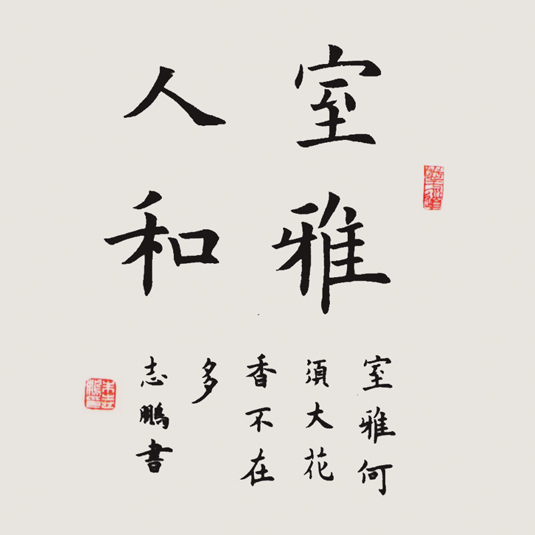 室雅
人和
室雅何
須大花
香不在
多
志鵬書